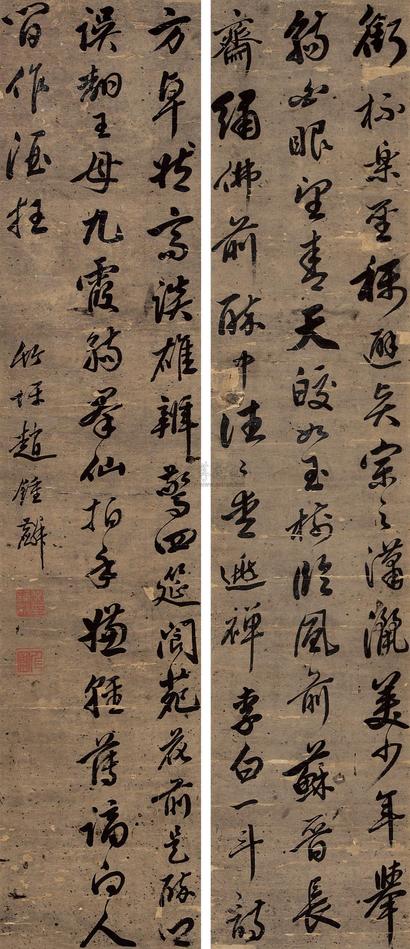 銜杯樂聖稱避賢宗之瀟灑美少年舉
觴白眼望青天皎如玉樹臨風前蘇晉長
齋繡佛前醉中往々愛逃禪李白一斗詩
方卓然高談雄辯驚四筵閬苑花前是醉鄉
誤翻王母九霞觴羣仙拍手嫌輕薄謫向人
間作酒狂
竹坪趙鍾麟